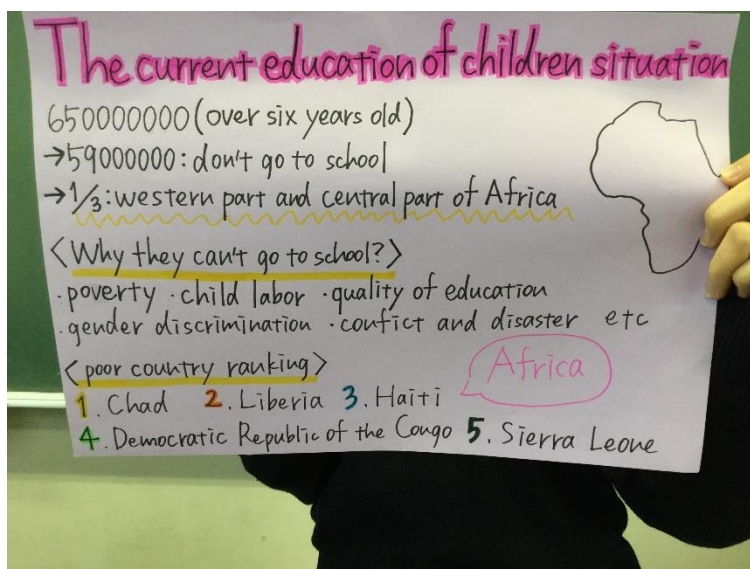 The current education of children situation
650000000(over six years old)
→59000000: don't go to school
→1/3: western part and central part of Africa
<Why they can't go to school?>
·poverty ·child labor ·quality of education
·gender discrimination ·confict and disaster etc
<poor country ranking>
Africa
1. Chad 2. Liberia 3. Haiti
4. Democratic Republic of the Congo 5. Sierra Leone